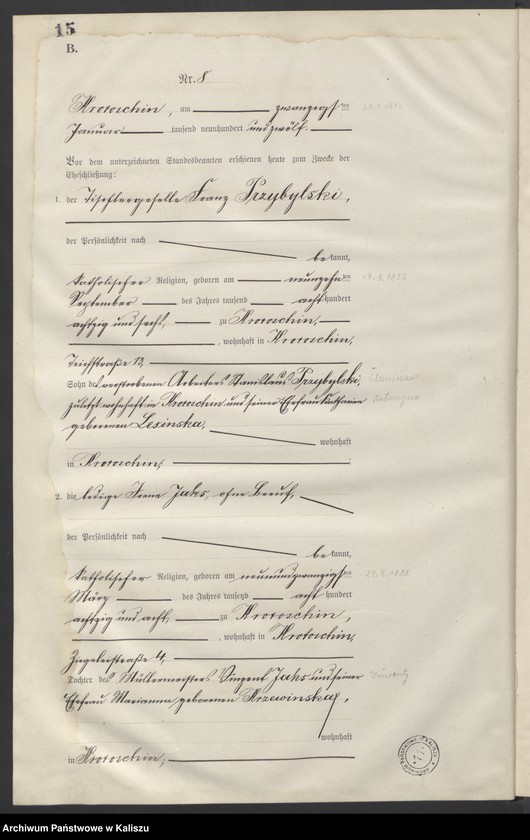 15
B.
Nr. 8
Krotoschin, am zwanzigsten
20.1.1912
Januar tausend neunhundert und zwölf.
Vor dem unterzeichneten Standesbeamten erschienen heute zum Zwecke der
Eheschließung:
1. der Tischlergeselle Franz Przybylski,
der Persönlichkeit nach
bekannt,
katholischer Religion, geboren am neunzehnten
19.9.1886
September des Jahres tausend achthundert
achtzig und sechs, zu Krotoschin,
, wohnhaft in Krotoschin,
Teichstraße 12,
Sohn des verstorbenen Arbeiters Stanislaus Przybylski,
zuletzt wohnhaft in Krotoschin und seiner Ehefrau Katharina
geborenen Lesinska,
wohnhaft
in Krotoschin,
2. die ledige Juks, ohne Beruf,
der Persönlichkeit nach
bekannt,
katholischer Religion, geboren am neunundzwanzigsten
29.3.1888
März des Jahres tausend achthundert
achtzig und acht, zu Krotoschin,
, wohnhaft in Krotoschin,
Ziegeleistraße 4,
Tochter des Müllermeisters Vinzent Juks und seiner
Ehefrau Marianna geborenen
wohnhaft
in Krotoschin,
Archiwum Państwowe w Kaliszu